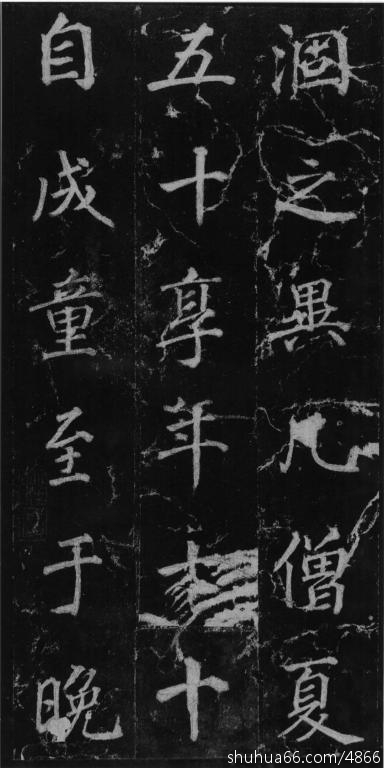 涸之異凡僧夏
五十享年十
自成童至于晚
shuhua66.com/4866